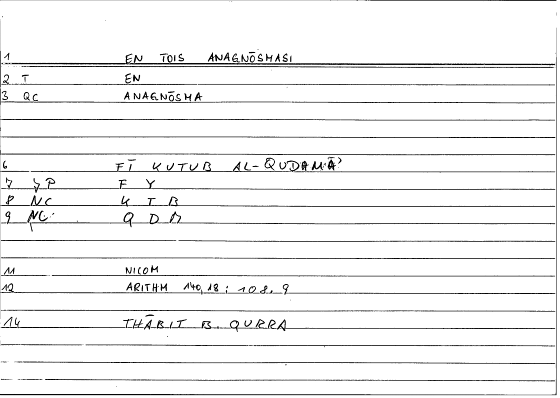 1 EN TOIS ANAGNŌSMASI
2 T EN
3 QC ANAGNŌSMA
6 FĪ KUTUB AL-QUDAMĀʾ
7 YP F Y
8 NC K T B
9 NC Q D M
11 NICOM
12 ARITHM 140,18 : 108,9
14 THĀBIT B. QURRA